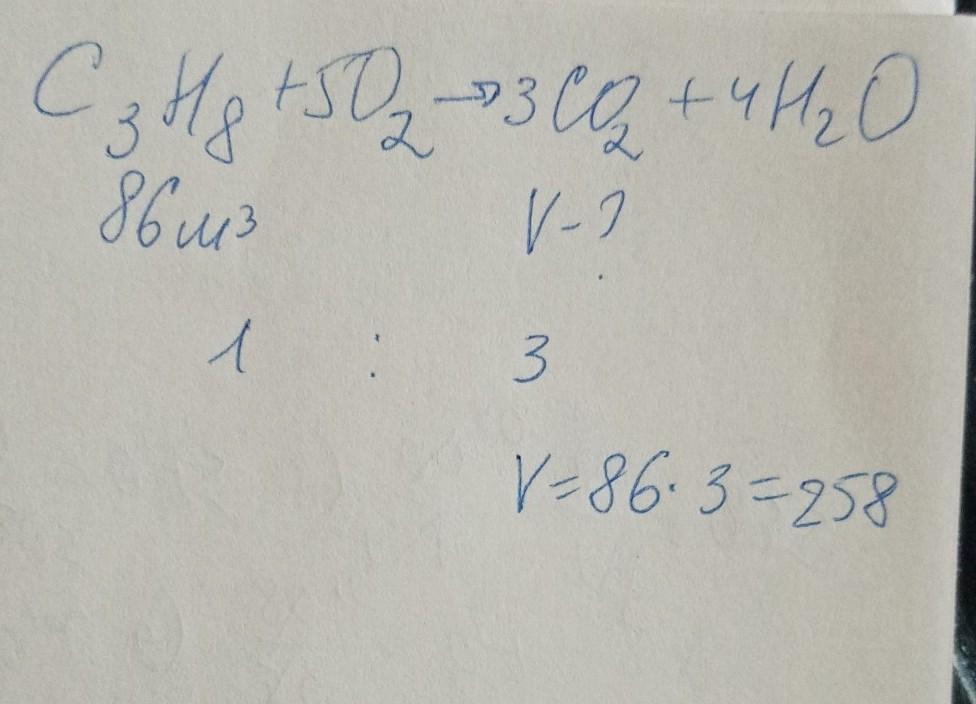 C₃H₈ + 5O₂ → 3CO₂ + 4H₂O
86 м³ V - ?
1 : 3
V = 86 · 3 = 258